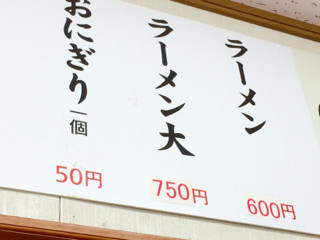 ラーメン
600円
ラーメン大
750円
おにぎり一個
50円